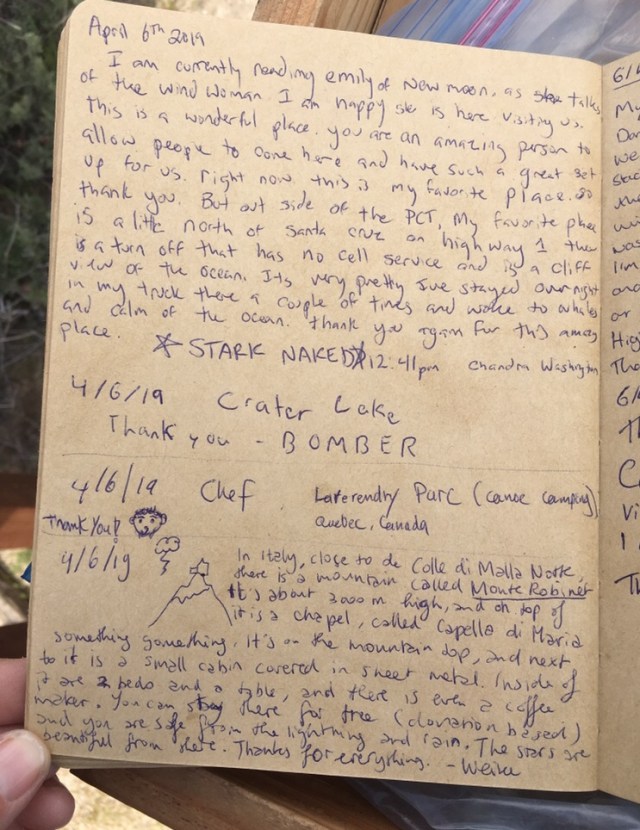 April 6th 2019
I am currently reading emily of New moon, as she talks
of the wind woman. I am happy she is here visiting us.
This is a wonderful place. you are an amazing person to
allow people to come here and have such a great set
up for us. right now this is my favorite place. so
thank you. But out side of the PCT, My favorite place
is a little north of santa cruz on highway 1 there
is a turn off that has no cell service and is a cliff
view of the ocean. Its very pretty Ive stayed overnight
in my truck there a couple of times and woke to whales
and calm of the ocean. thank you again for this amazing
place.
☆ STARK NAKED☆ 12:41pm Chandra Washington
4/6/19 Crater Lake
Thank you - BOMBER
4/6/19 Chef Laverendry Parc (canoe camping)
Quebec, Canada
Thank You!
4/6/19
In Italy, close to de Colle di Malla Notte,
there is a mountain called Monte Robinet
It's about 3000 m high, and on top of
it is a chapel, called Capella di Maria
something something. It's on the mountain top, and next
to it is a small cabin covered in sheet metal. Inside of
it are 2 beds and a table, and there is even a coffee
maker. You can stay there for free (donation based)
and you are safe from the lightning and rain. The stars are
beautiful from there. Thanks for everything. -
6/
My
we
was
and
or
High
6/
Vi
I